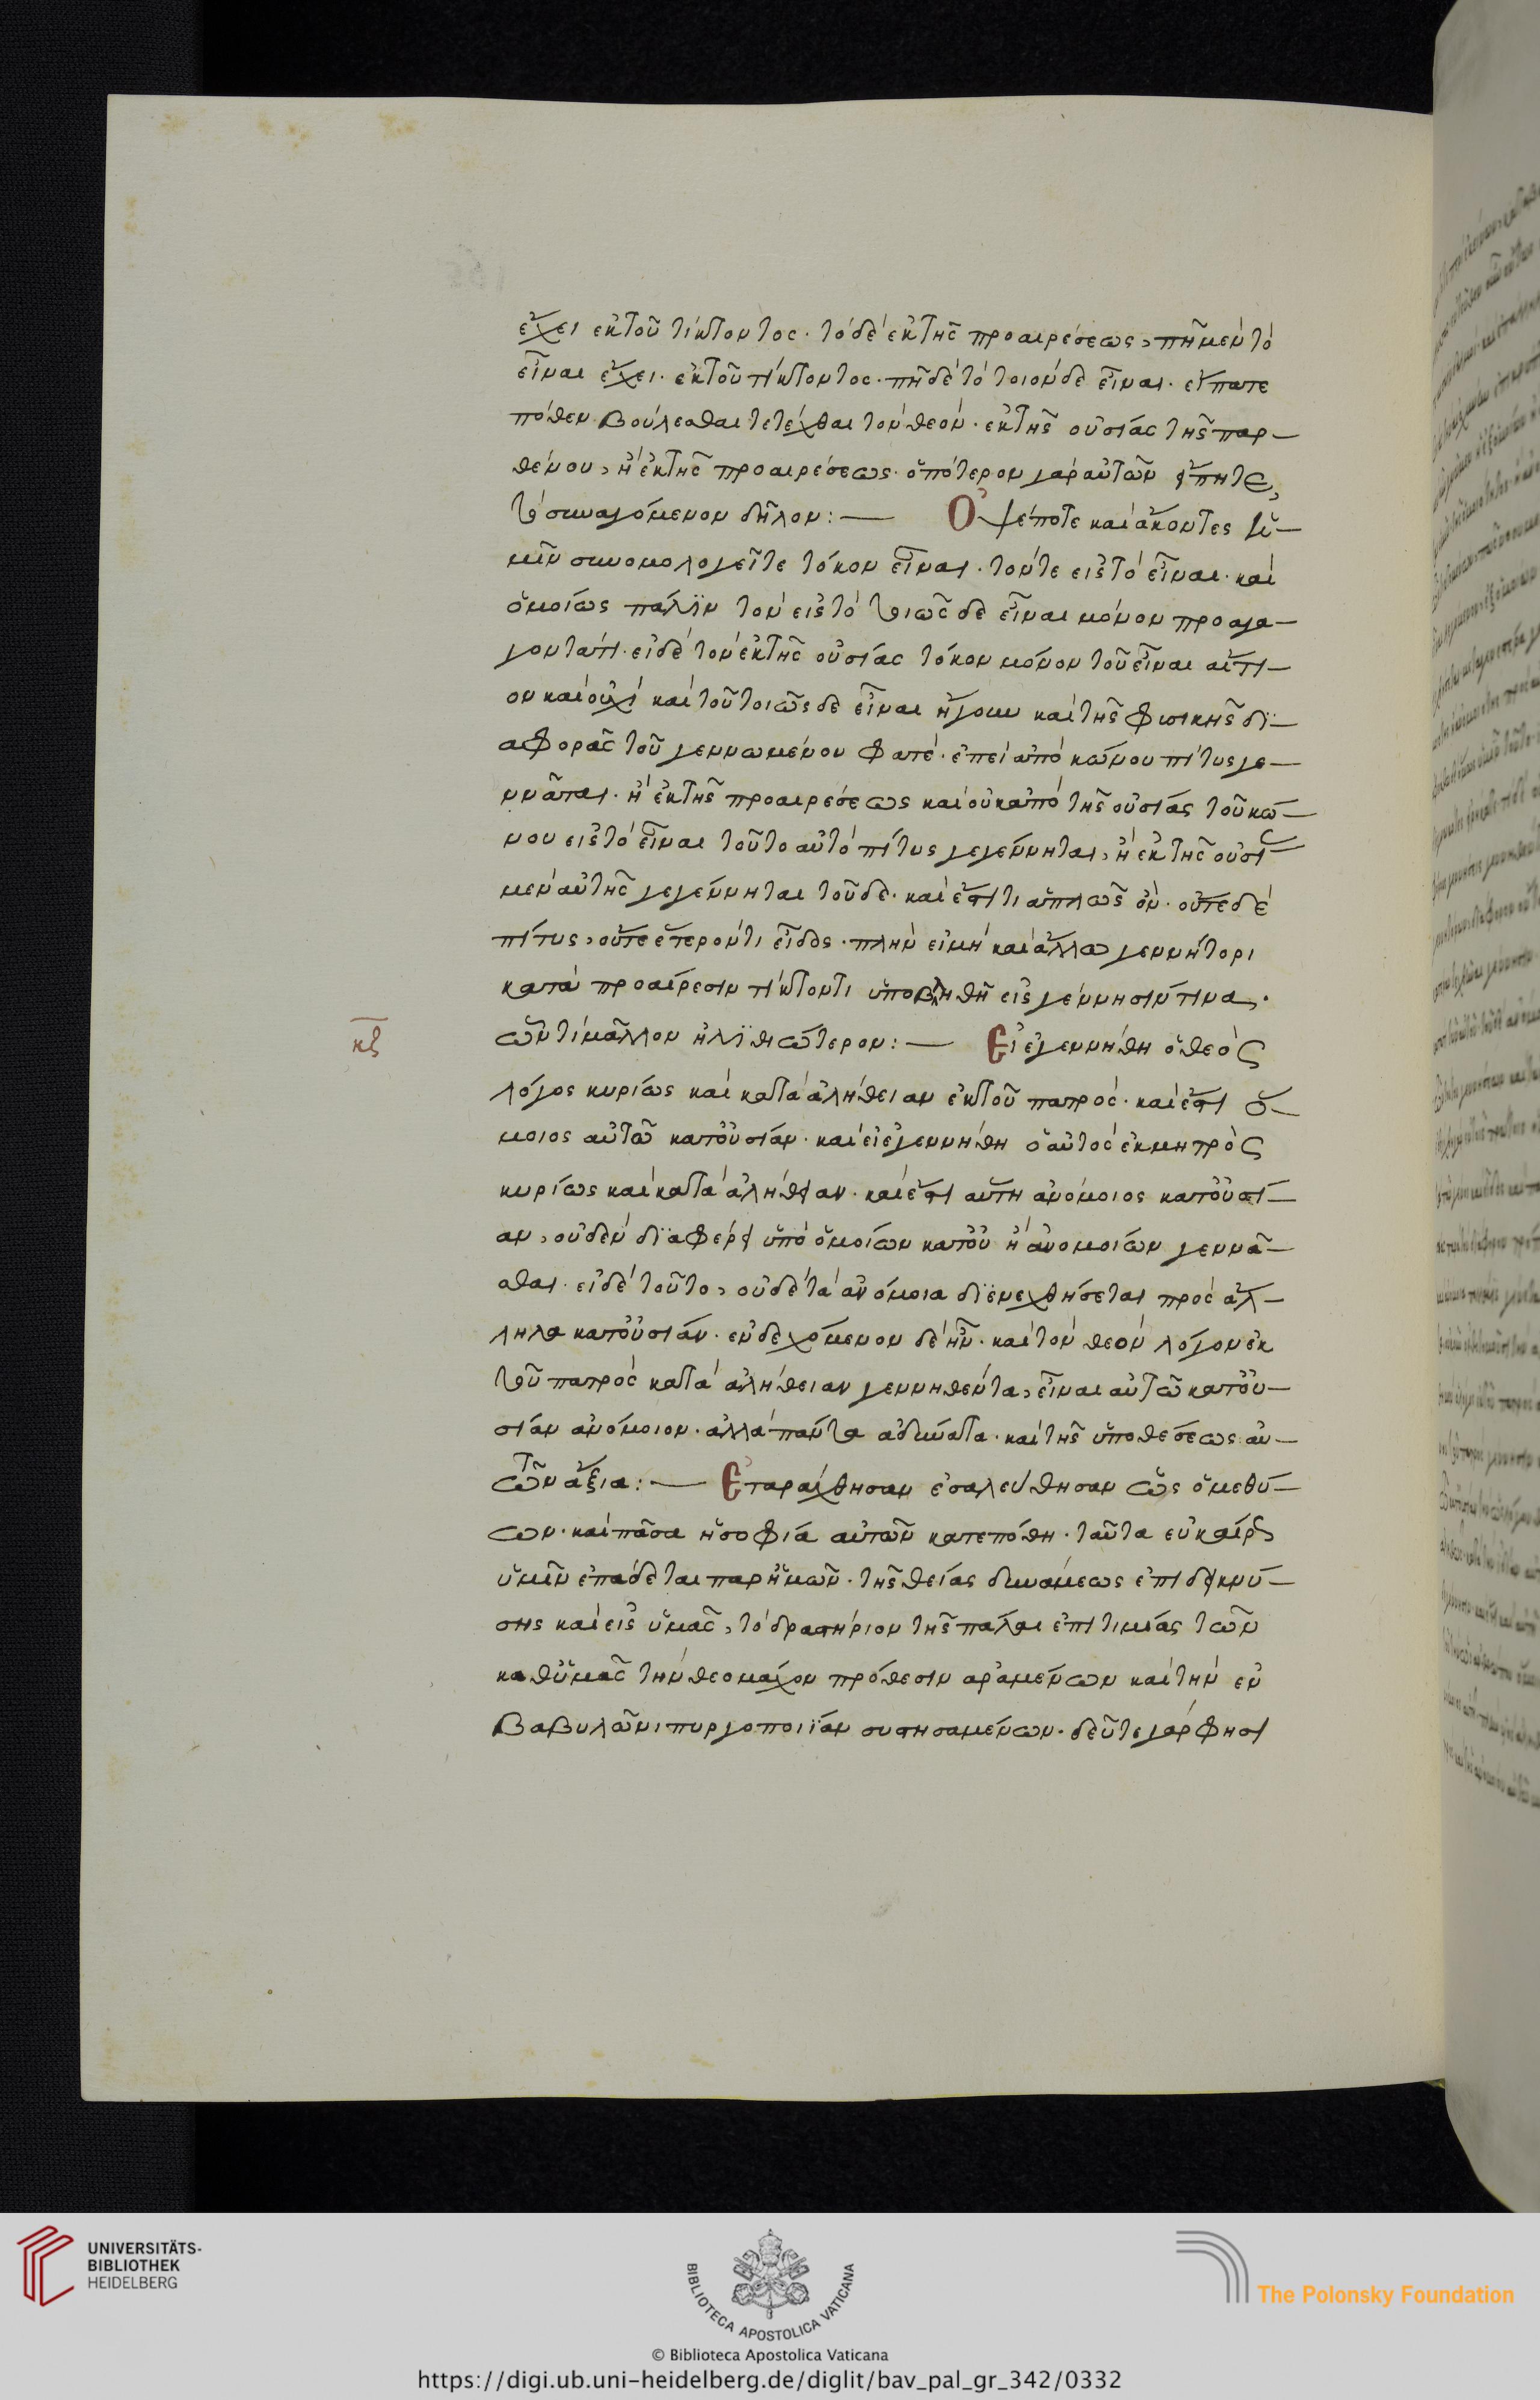 ἔχει ἐκ τοῦ τίκτοντος· τὸ δὲ ἐκ τῆς προαιρέσεως, πῆ μὲν τὸ
εἶναι ἔχει· ἐκ τοῦ τίκτοντος· πῆ δὲ τὸ τοιόνδε εἶναι· εἴπατε
πόθεν βούλεσθαι τετέχθαι τὸν θεόν· ἐκ τῆς οὐσίας τῆς παρ-
θένου, ἢ ἐκ τῆς προαιρέσεως· ὁπότερον γὰρ αὐτῶν εἴπητε,
τὸ συναγόμενον δῆλον: — Ὀψέποτε καὶ ἄκοντες ἡ-
μῖν συνομολογεῖτε τόκον εἶναι· τόν τε εἰς τὸ εἶναι· καὶ
ὁμοίως πάλϊν τὸν εἰς τὸ τοιῶσδε εἶναι μόνον προαγα-
γόντά τι· εἰ δὲ τὸν ἐκ τῆς οὐσίας τόκον μόνον τοῦ εἶναι αἴτι-
ον καὶ οὐχὶ καὶ τοῦ τοιῶσδε εἶναι ἤγουν καὶ τῆς φυσικῆς δϊ-
αφορᾶς τοῦ γεννωμένου φατέ· ἐπεὶ ἀπὸ κώνου πίτυς γε-
ννᾶται· ἢ ἐκ τῆς προαιρέσεως καὶ οὐκ ἀπὸ τῆς οὐσίας τοῦ κώ-
νου εἰς τὸ εἶναι τοῦτο αὐτὸ πίτυς γεγέννηται, ἢ ἐκ τῆς οὐσί
μὲν αὐτῆς γεγέννηται τοῦδε· καὶ ἔστι τι ἁπλῶς ὄν· οὔτε δὲ
πίτυς, οὔτε ἕτερόν τι εἶδος· πλὴν εἰ μὴ καὶ ἄλλω γεννήτορι
κατὰ προαίρεσιν τίκτοντι ὑποβληθῆ εἰς γέννησίν τινα·
ὧν τί μᾶλλον ἠλϊθιώτερον: — Εἰ ἐγεννήθη ὁ θεὸς
κϛ
λόγος κυρίως καὶ κατὰ ἀλήθειαν ἐκ τοῦ πατρός· καὶ ἔστι ὅ-
μοιος αὐτῶ κατ' οὐσίαν· καὶ εἰ ἐγεννήθη ὁ αὐτὸς ἐκ μητρὸς
κυρίως καὶ κατὰ ἀλήθειαν· καὶ ἔστι αὐτῆ ἀνόμοιος κατ' οὐσί-
αν, οὐδὲν δϊαφέρει ὑπὸ ὁμοίων κατ' οὐ ἢ ἀνομοίων γεννᾶ-
σθαι· εἰ δὲ τοῦτο, οὐδὲ τὰ ἀνόμοια δϊενεχθήσεται πρὸς ἄλ-
ληλα κατ' οὐσίαν· ἐνδεχόμενον δὲ ἦν· καὶ τὸν θεὸν λόγον ἐκ
τοῦ πατρὸς κατὰ ἀλήθειαν γεννηθέντα, εἶναι αὐτῶ κατ' οὐ-
σίαν ἀνόμοιον· ἀλλὰ πάντα ἀδύνατα· καὶ τῆς ὑποθέσεως αὐ-
τῶν ἄξια: — Ἐταράχθησαν ἐσαλεύθησαν ὡς ὁ μεθύ-
ων· καὶ πᾶσα ἡ σοφία αὐτῶν κατεπόθη· ταῦτα εὐκαίρως
ὑμῖν ἐπάδεται παρ' ἡμῶν· τῆς θείας δυνάμεως ἐπιδεικνύ-
σης καὶ εἰς ὑμᾶς, τὸ δραστήριον τῆς πάλαι ἐπιτιμίας τῶν
καθ' ὑμᾶς τὴν θεομάχον πρόθεσιν ἀραμένων καὶ τὴν ἐν
Βαβυλῶνι πυργοποιϊαν συστησαμένων· δεῦτε γάρ φησι
UNIVERSITÄTS-
BIBLIOTHEK
HEIDELBERG
BIBLIOTECA APOSTOLICA VATICANA
The Polonsky Foundation
© Biblioteca Apostolica Vaticana
https://digi.ub.uni-heidelberg.de/diglit/bav_pal_gr_342/0332